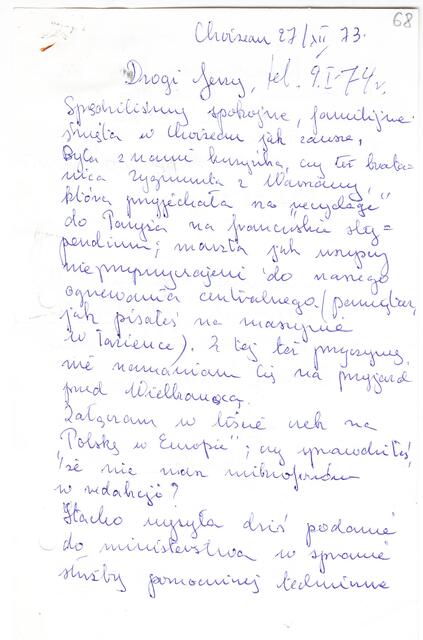 68
Choizeau 27/XII 73.
Drogi Jerzy, tel. 9.I-74 r.
Spędziliśmy spokojne, familijne
święta w Choizeau jak zawsze,
Była z nami kuzynka, czy też brata-
nica Zygmunta z Warszawy,
która przyjechała na "recyclage"
do Paryża na francuskie sty=
pendium; marzła jak wszyscy
nieprzyzwyczajeni do naszego
ogrzewania centralnego. (pamiętasz,
jak pisałeś na maszynie
w łazience). Z tej też przyczyny,
nie namawiam Cię na przyjazd
przed Wielkanocą.
Załączam w liście czek na
"Polskę w Europie"; czy sprawdziłeś
że nie masz mikrofonów
w redakcji?
Stacho wysyła dziś podanie
do ministerstwa w sprawie
służby pomocniczej